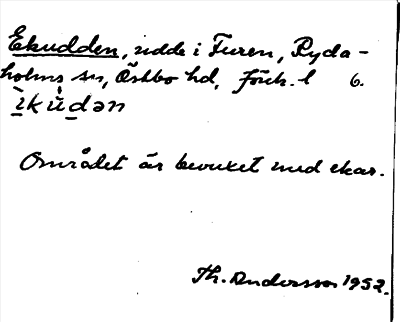 Ekudden, udde i Furen, Ryda-
holms sn, Östbo hd, förek. l 6.
ìkùdən
Området är bevuxet med ekar.
Th. Andersson 1952.